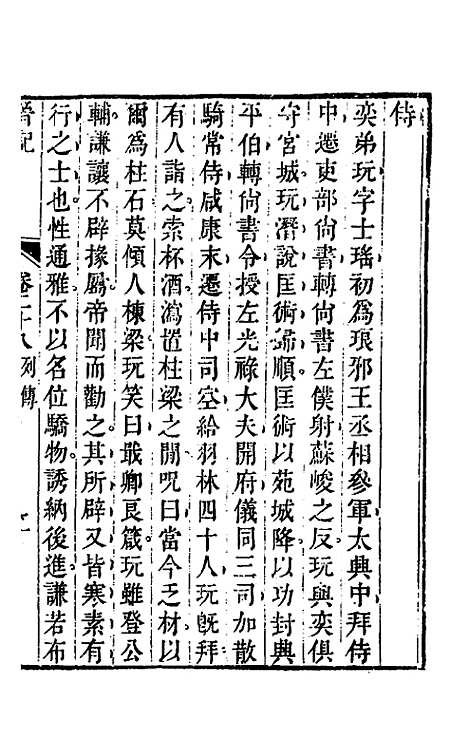 侍
奕弟玩字士瑤初爲琅邪王丞相參軍太興中拜侍
中遷吏部尙書轉尙書左僕射蘇峻之反玩與奕俱
守宮城玩潛說匡術歸順匡術以苑城降以功封興
平伯轉尙書令授左光祿大夫開府儀同三司加散
騎常侍咸康末遷侍中司空給羽林四十人玩旣拜
有人詣之索杯酒瀉置柱梁之閒咒曰當今乏材以
爾爲柱石莫傾人棟梁玩笑曰戢卿良箴玩雖登公
輔謙讓不辟掾屬帝聞而勸之其所辟又皆寒素有
行之士也性通雅不以名位驕物誘納後進謙若布
晉記
卷二十八列傳